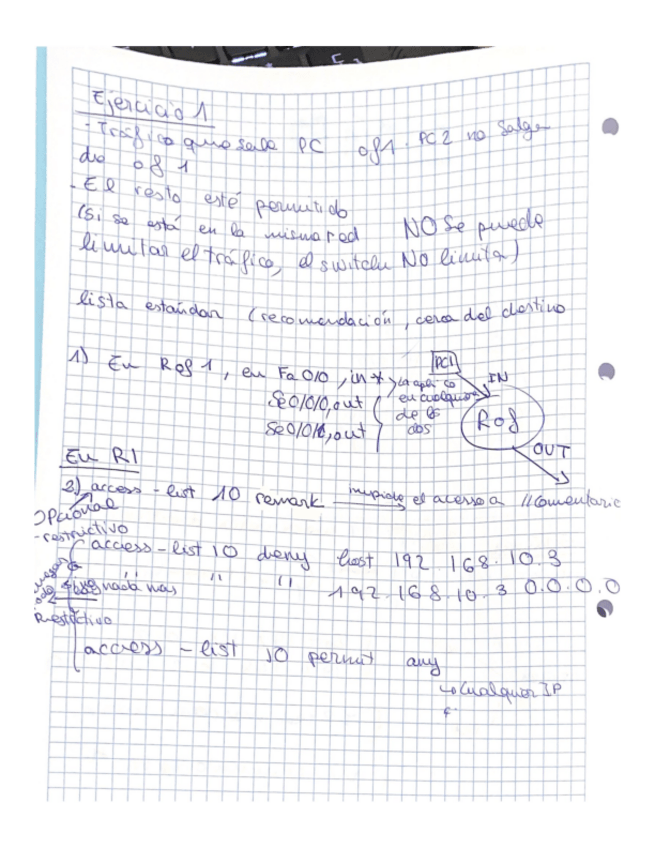 Ejercicio 1
- Tráfico que sale PC of1. PC2 no salga
de of 1
- El resto esté permitido
(Si se está en la misma red NO Se puede
limitar el tráfico, el switch NO limita)
lista estandar (recomendación, cerca del destino
1) En Rof 1, en Fa0/0, in * > la aplico
Se0/0/0, out en cualquiera
Se0/0/1, out de los
dos
PC1
IN
Rof
OUT
En R1
2) access - list 10 remark impide el acceso a //Comentario
Opcional
- restrictivo
access - list 10 deny host 192.168.10.3
" " " " 192.168.10.3 0.0.0.0
nada más
Restrictivo
access - list 10 permit any
↳ Cualquier IP